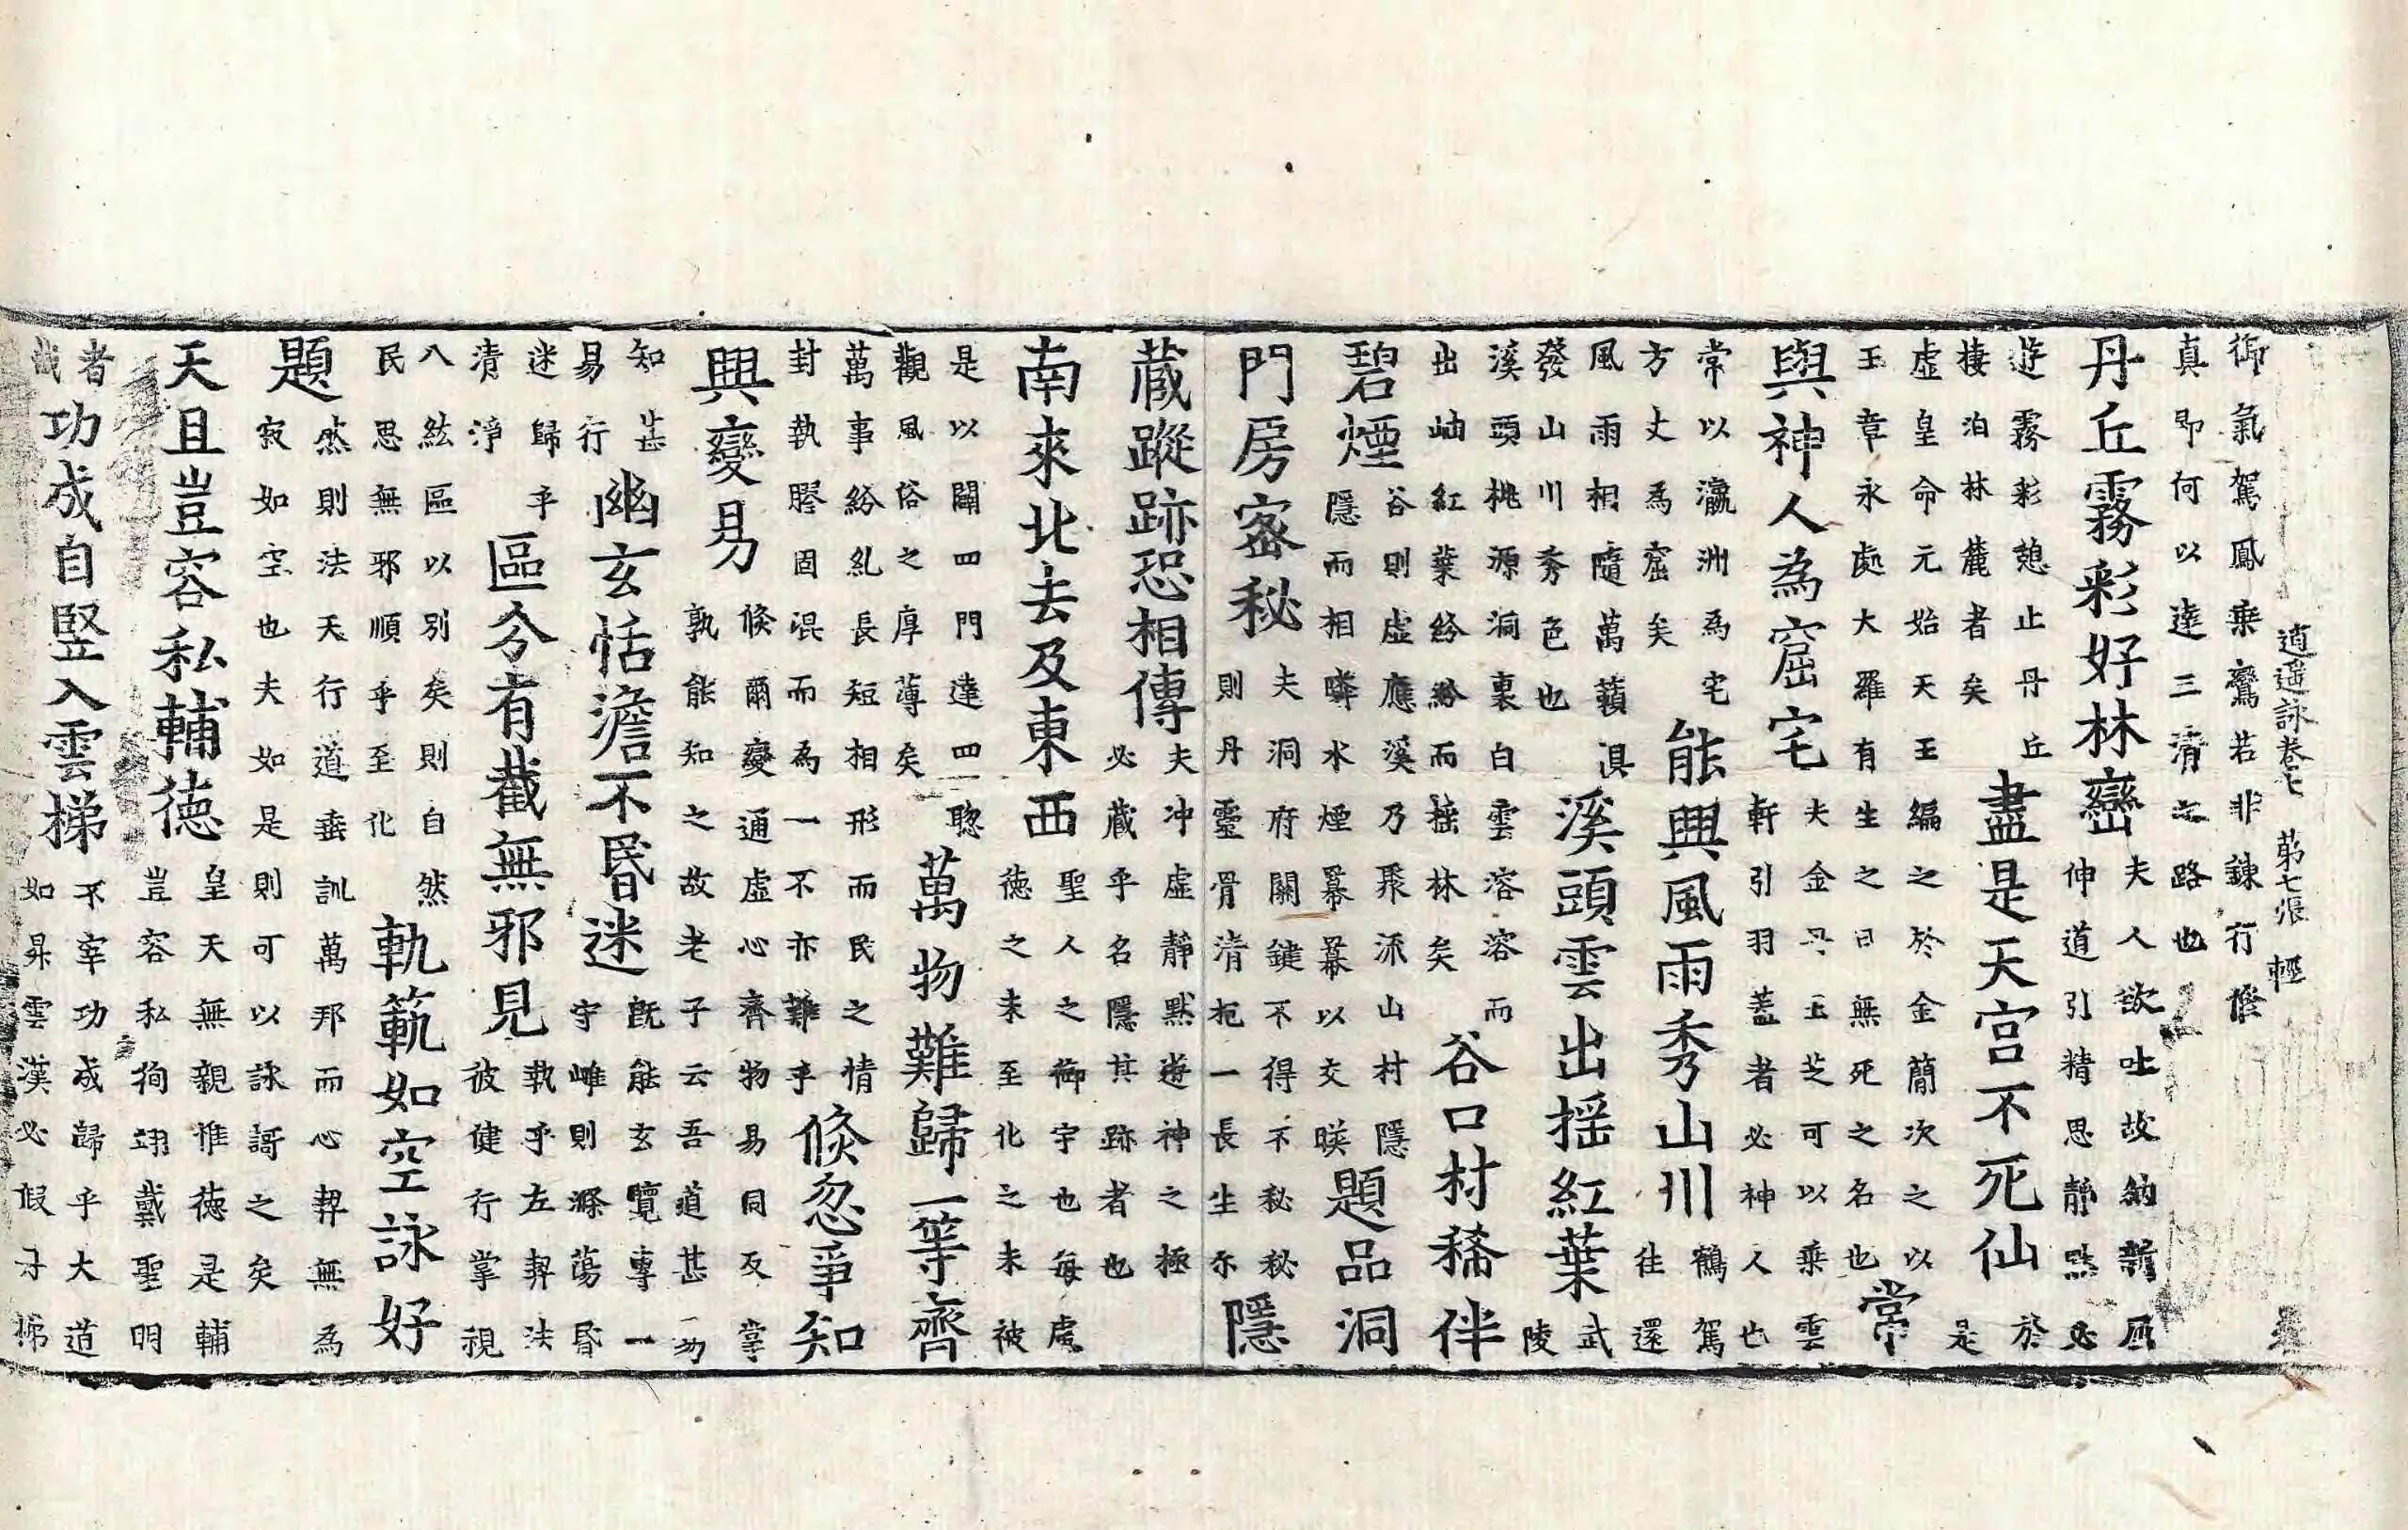 逍遥詠卷七 第七張 輕
御氣駕鳳乗鸞若非鍊行修
真即何以達三清之路也
丹丘霧彩好林巒
夫人欲吐故納新
伸道引精思靜默必
遊霧彩憩止丹丘
棲泊林麓者矣
盡是天宫不死仙
於
是
虚皇命元始天王編之於金簡次之以
玉章永處大羅有生之日無死之名也
常
與神人為窟宅
夫金丹玉芝可以乗雲
軒引羽蓋者必神人也
常以瀛洲為宅
方丈為窟矣
能興風雨秀山川
鶴駕
往還
風雨相隨萬籟俱
發山川秀色也
溪頭雲出揺紅葉
武
陵
溪頭桃源洞裏白雲溶溶而
出岫紅葉紛紛而揺林矣
谷口村稀伴
碧煙
谷則虚應溪乃聚派山村隱
隱而相瞵水煙羃羃以交暎
題品洞
門房宻秘
夫洞府關鍵不得不秘秘
則丹靈骨清抱一長生尓
隱
蔵蹤跡恐相傳
夫冲虚靜黙遊神之極
必蔵乎名隱其跡者也
南來北去及東西
聖人之御宇也每處
徳之未至化之未被
是以闢四門達四聦
觀風俗之厚薄矣
萬物難歸一等齊
萬事紛糺長短相形而民之情
封執膠固混而為一不亦難乎
倐忽爭知
興變易
倐爾變通虚心齊物易同反掌
孰能知之故老子云吾道甚易
知甚
易行
幽玄恬澹不昬迷
既能玄覽專一
守雌則滌蕩昬
迷歸乎
清淨
區分有截無邪見
執乎左契法
彼健行掌視
八紘區以別矣則自然
民思無邪順乎至化
軌䡄如空詠好
題
然則法天行道垂訓萬邦而心契無為
寂如空也夫如是則可以詠謌之矣
天且豈容私輔徳
皇天無親惟徳是輔
豈容私徇翊戴聖明
者
哉
功成自竪入雲梯
不宰功成歸乎大道
如昇雲漢必假于梯